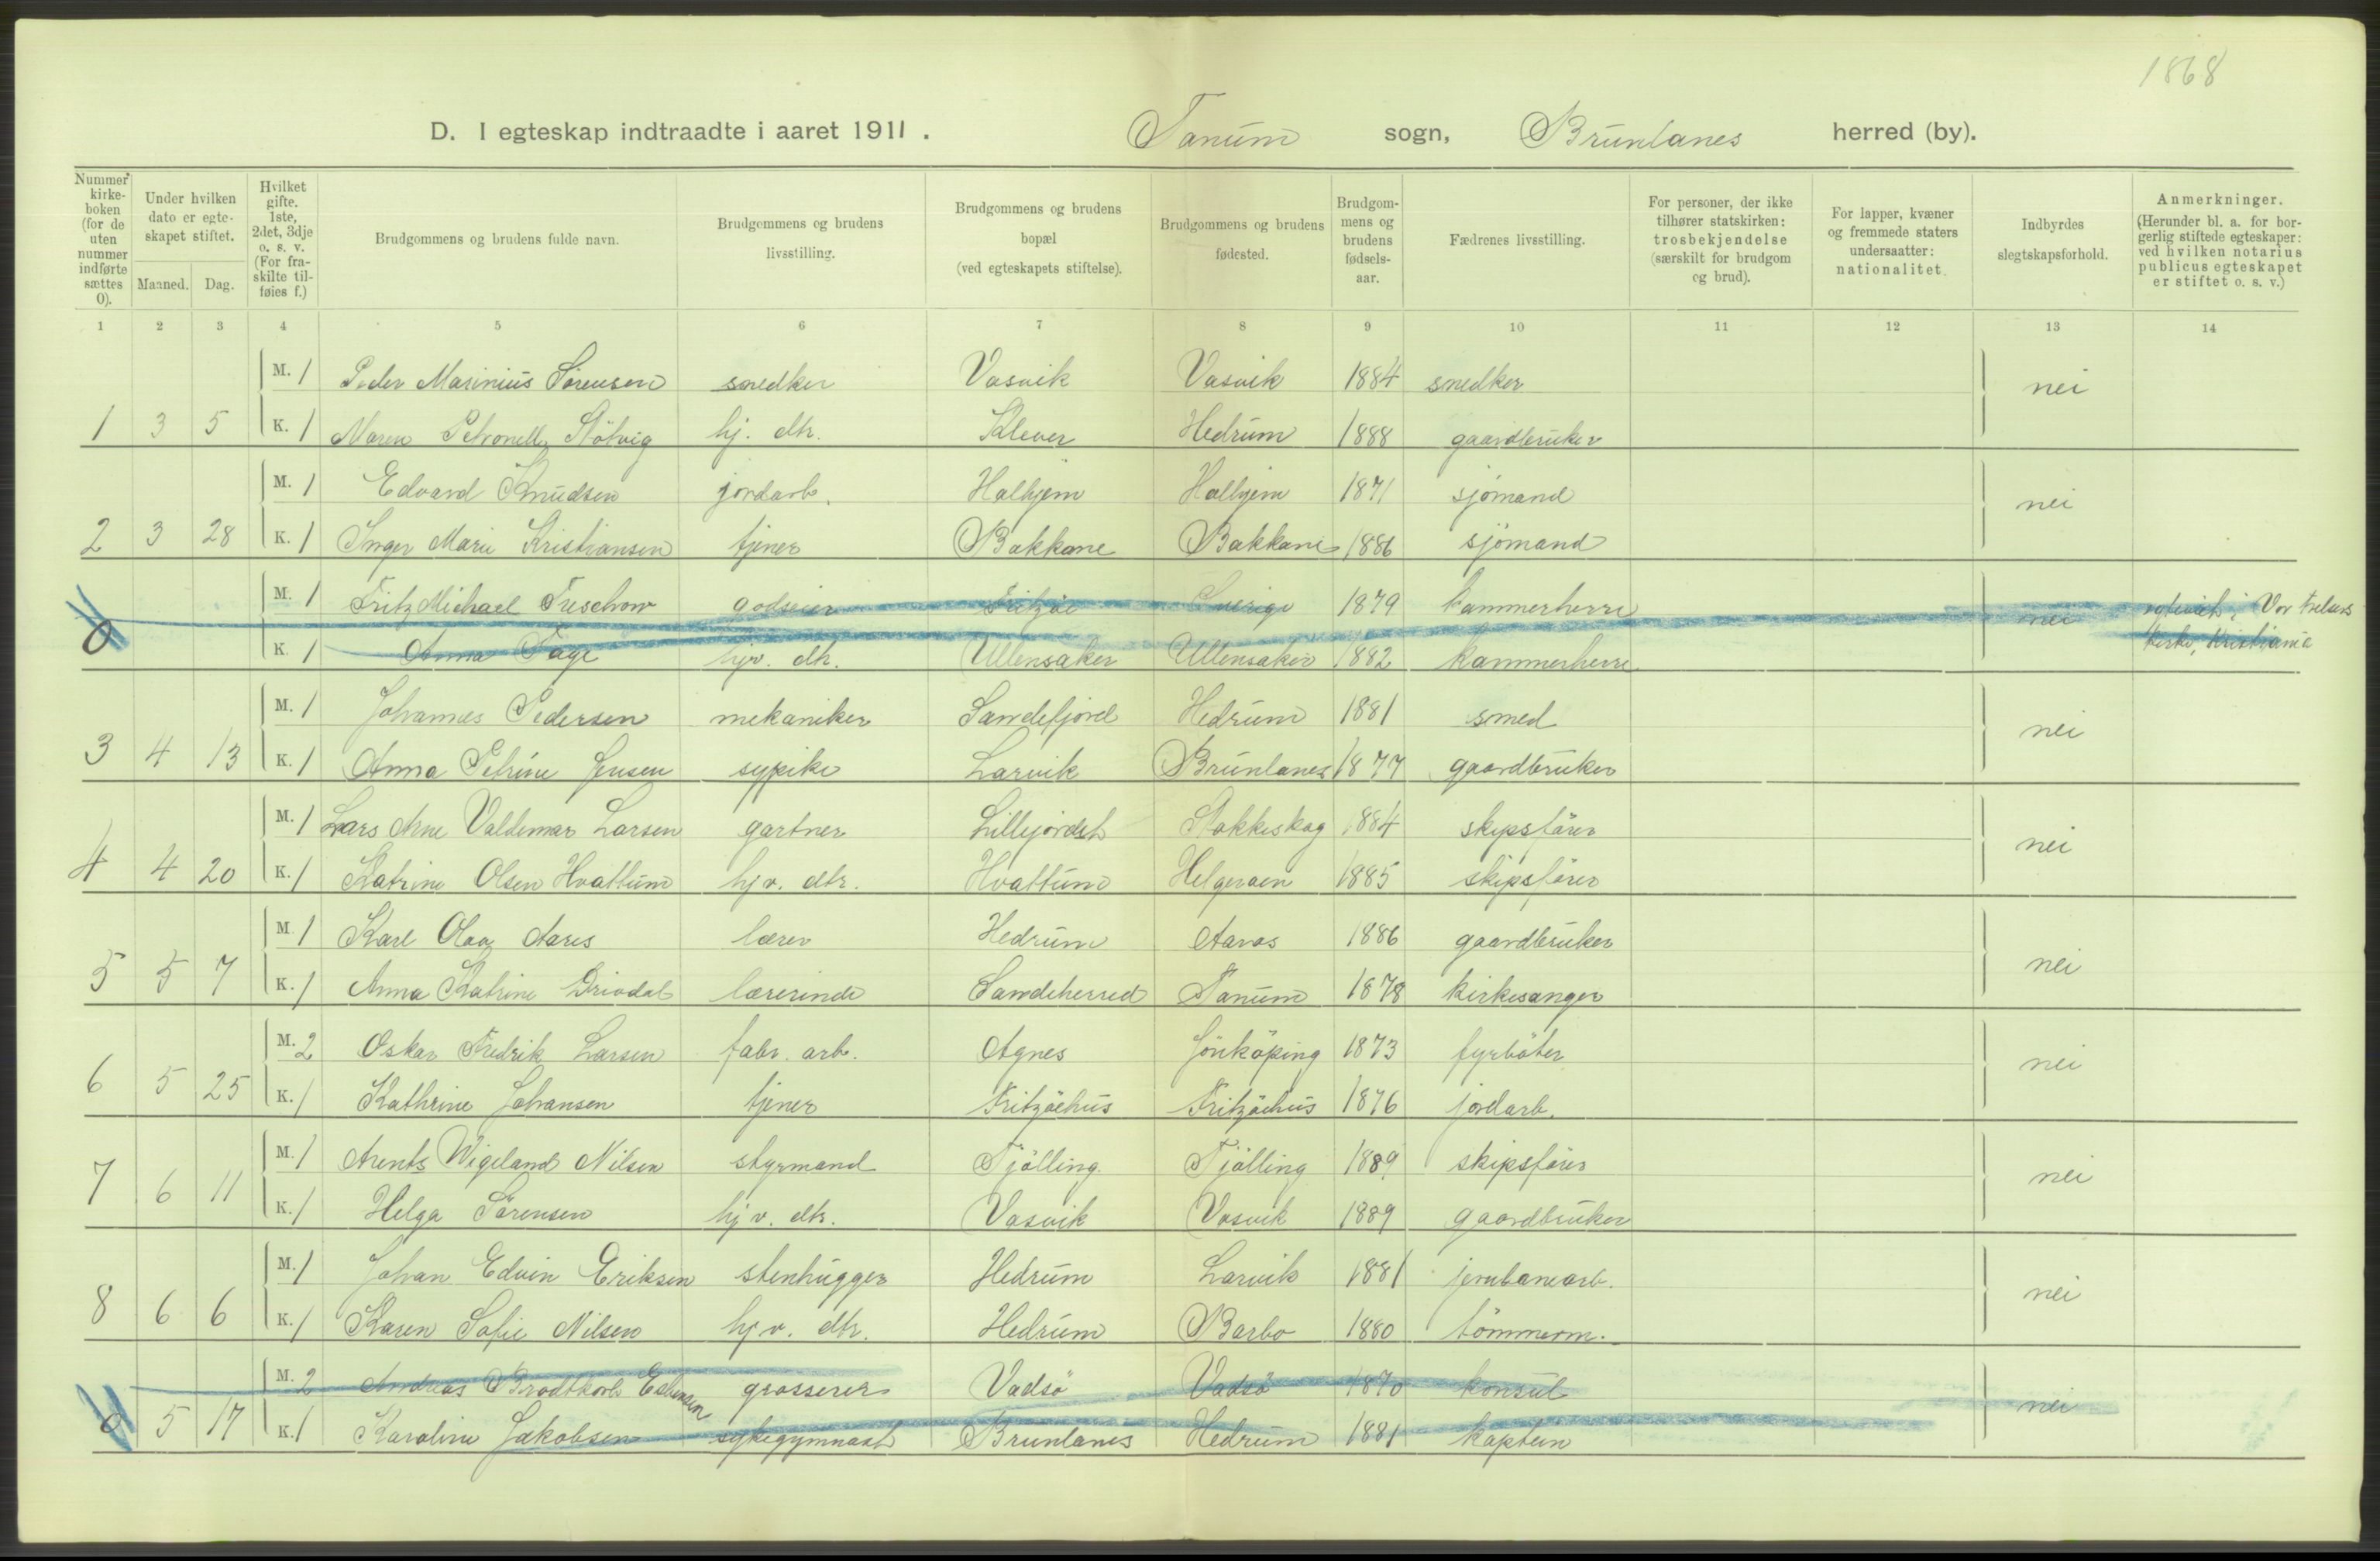 1868
D. I egteskap indtraadte i aaret 1911. Tanum sogn, Brunlanes herred (by).
Nummer i kirkeboken (for de uten nummer indførte sættes 0). | Under hvilken dato er egteskapet stiftet. Maaned. Dag. | Hvilket gifte. 1ste, 2det, 3dje o. s. v. (For fraskilte tilføies f.) | Brudgommens og brudens fulde navn. | Brudgommens og brudens livsstilling. | Brudgommens og brudens bopæl (ved egteskapets stiftelse). | Brudgommens og brudens fødested. | Brudgommens og brudens fødselsaar. | Fædrenes livsstilling. | For personer, der ikke tilhører statskirken: trosbekjendelse (særskilt for brudgom og brud). | For lapper, kvæner og fremmede staters undersaatter: nationalitet. | Indbyrdes slegtskapsforhold. | Anmerkninger. (Herunder bl. a. for borgerlig stiftede egteskaper: ved hvilken notarius publicus egteskapet er stiftet o. s. v.)
1 2 3 4 5 6 7 8 9 10 11 12 13 14
M. 1 Peder Marinius Sørensen snedker Vasvik Vasvik 1884 snedker nei
1 3 5 K. 1 Maren Petronelle Stölvig hj. dtr. Klever Hedrum 1888 gaardbruker
M. 1 Edvard Knudsen jordarb. Halhjem Halhjem 1871 sjömand nei
2 3 28 K. 1 Inger Marie Kristiansen tjener Bakkane Bakkane 1886 sjömand
M. 1 Fritz Michael Treschow godseier Fritzöe Sverige 1879 kammerherre nei Vor Frelsers
0 K. 1 Anna Fage hjv. dtr. Ullensaker Ullensaker 1882 kammerherre kirke, Kristiania
M. 1 Johannes Pedersen mekaniker Sandefjord Hedrum 1881 smed nei
3 4 13 K. 1 Anna Petrine Jensen sypike Larvik Brunlanes 1877 gaardbruker
M. 1 Lars Arne Valdemar Larsen gartner Lillejordet Stokkeskog 1884 skipsförer nei
4 4 20 K. 1 Katrine Olsen Hvattum hjv. dtr. Hvattum Helgeroen 1885 skipsförer
M. 1 Karl Olav Aares lærer Hedrum Aaros 1886 gaardbruker nei
5 5 7 K. 1 Anna Katrine Drivdal lærerinde Sandeherred Tanum 1878 kirkesanger
M. 2 Oskar Fredrik Larsen fabr. arb. Agnes Jönköping 1873 fyrböter nei
6 5 25 K. 1 Kathrine Johansen tjener Fritzöehus Fritzöehus 1876 jordarb.
M. 1 Arents Wigeland Nilsen styrmand Tjölling Tjölling 1889 skipsförer nei
7 6 11 K. 1 Helga Sörensen hjv. dtr. Vasvik Vasvik 1889 gaardbruker
M. 1 Johan Edvin Eriksen stenhugger Hedrum Larvik 1881 jernbanearb. nei
8 6 6 K. 1 Karen Sofie Nilsen hjv. dtr. Hedrum Barbo 1880 tömmerm.
M. 2 Andreas Brodtkorb Esbensen grosserer Vadsö Vadsö 1870 konsul nei
0 5 17 K. 1 Karoline Jakobsen sykegymnast Brunlanes Hedrum 1881 kaptein